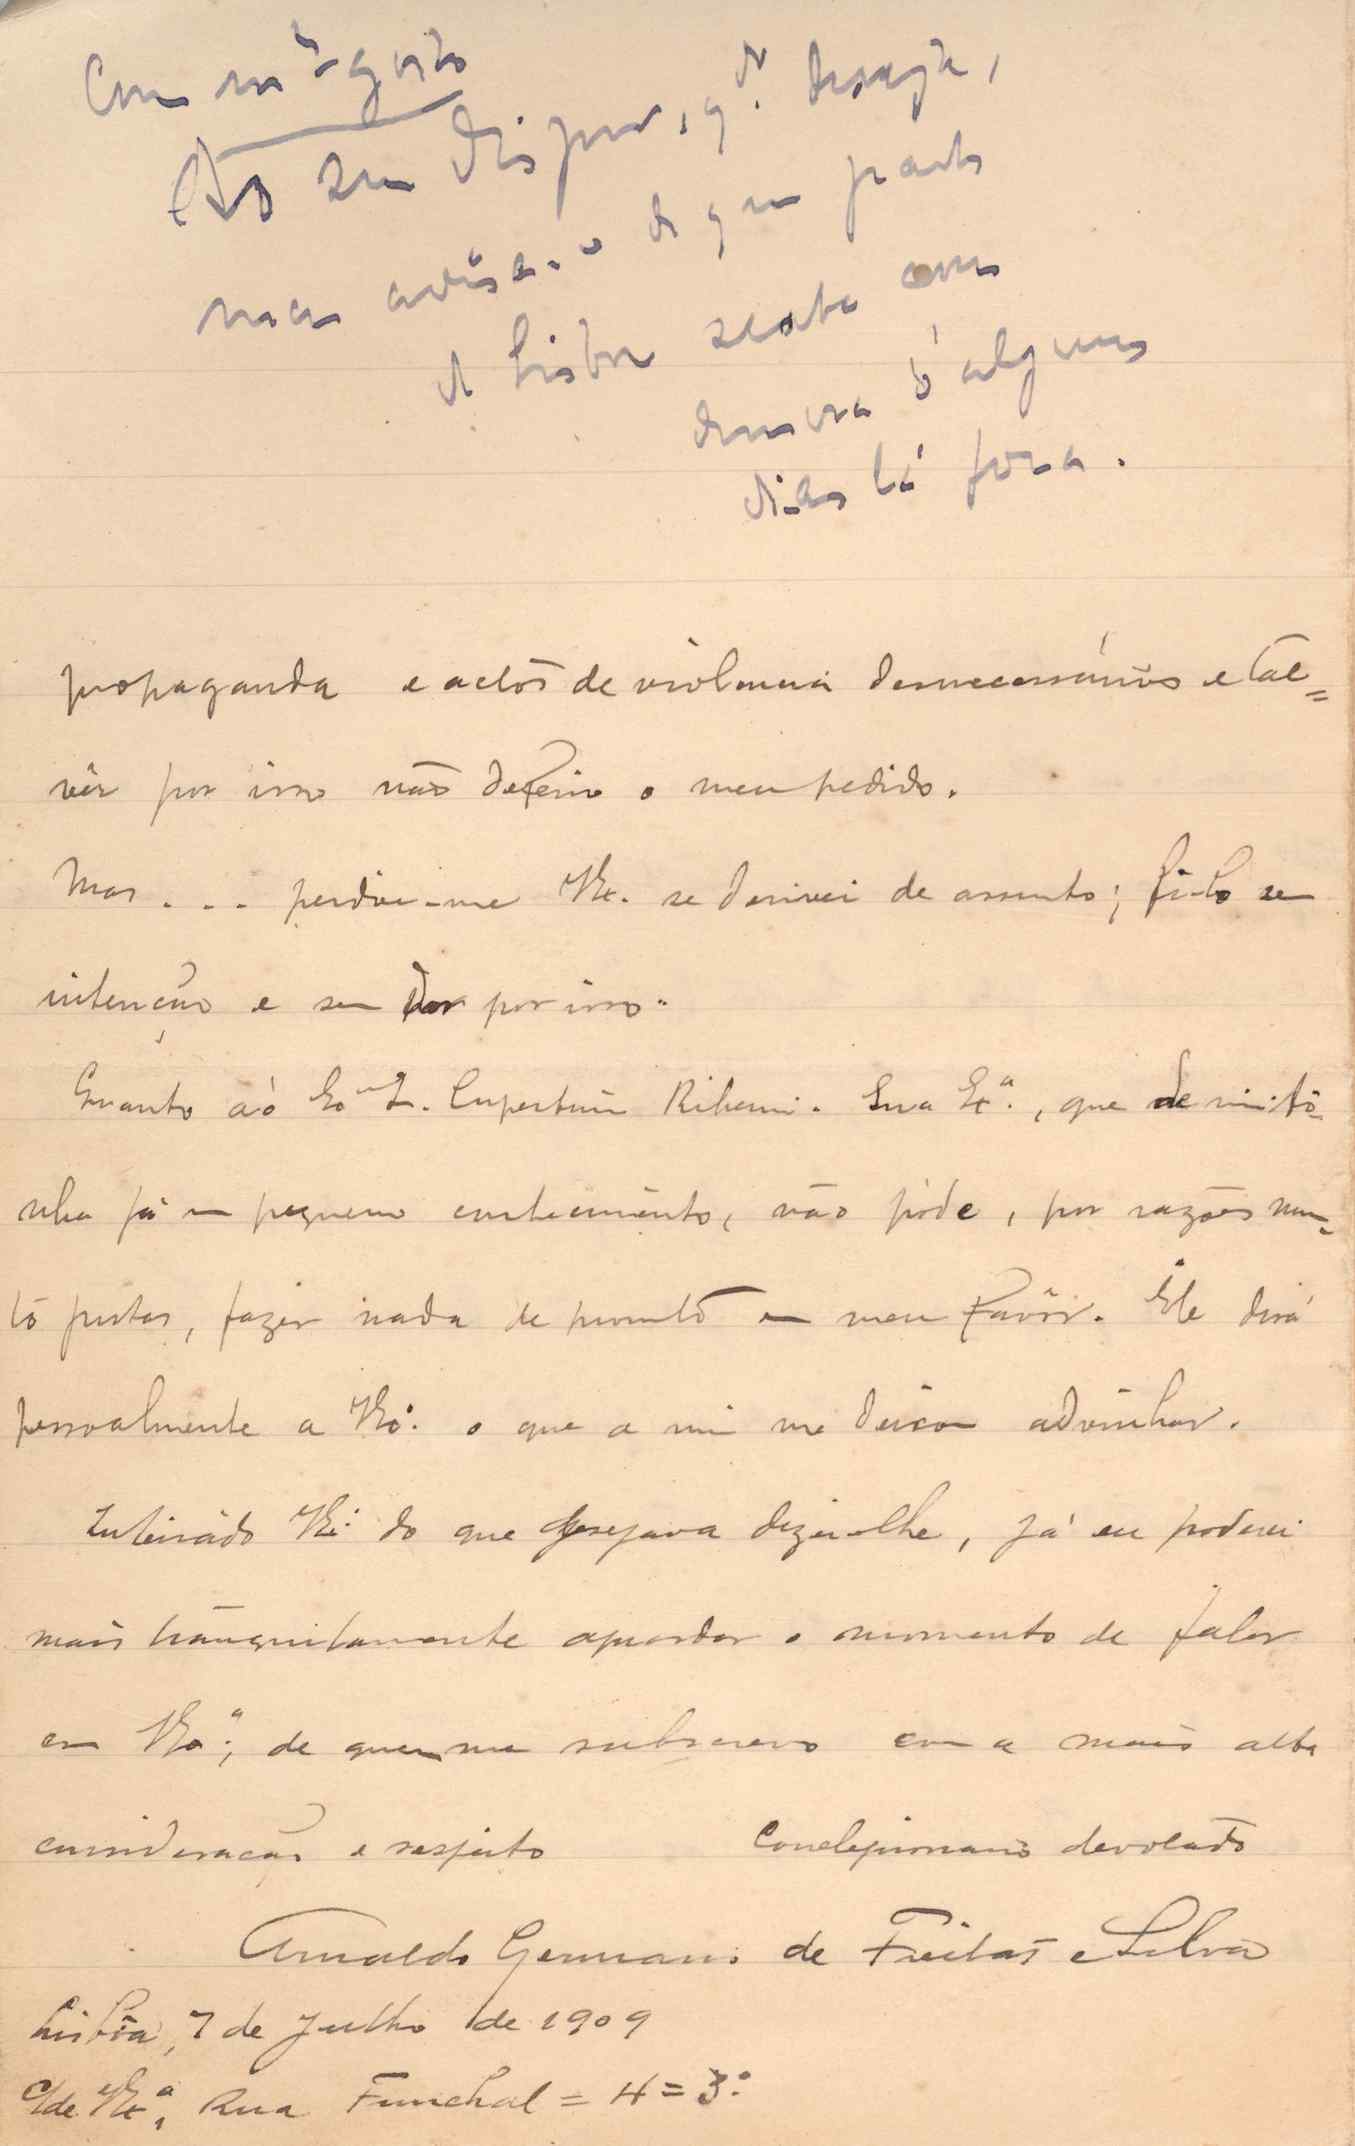 Com mto gosto
Ao seu dispor, qdo deseje,
mas aviso-o de que parto
de Lisboa sexta com
demora d'alguns
dias lá fora.
propaganda e actos de violencia desnecessários e tal=
vêz por isso não defeiro o meu pedido.
Mas... perdôe-me VEx. se derivei de assunto; fi-lo sem
intenção e sem dar por isso.
Quanto áo Ex.mo Sr. Cupertino Ribeiro. Sua Ex.ª, que de mi ti-
nha já um pequeno conhecimento, não póde, por razões mui-
to justas, fazer nada de pronto em meu favôr. Ele dirá
pessoalmente a VEx.ª o que a mi me deixou advinhar.
Inteirádo VEx.ª do que desejava dizer-lhe, já eu poderei
mais tranquilamente aguardar o momento de falar
com VEx.ª, de quem me subscrevo com a mais alta
consideração e respeito Correligionario devotado
Arnaldo Germano de Freitas e Silva
Lisbôa, 7 de Julho de 1909
C/de VEx.ª, Rua Funchal = 4 = 3.º